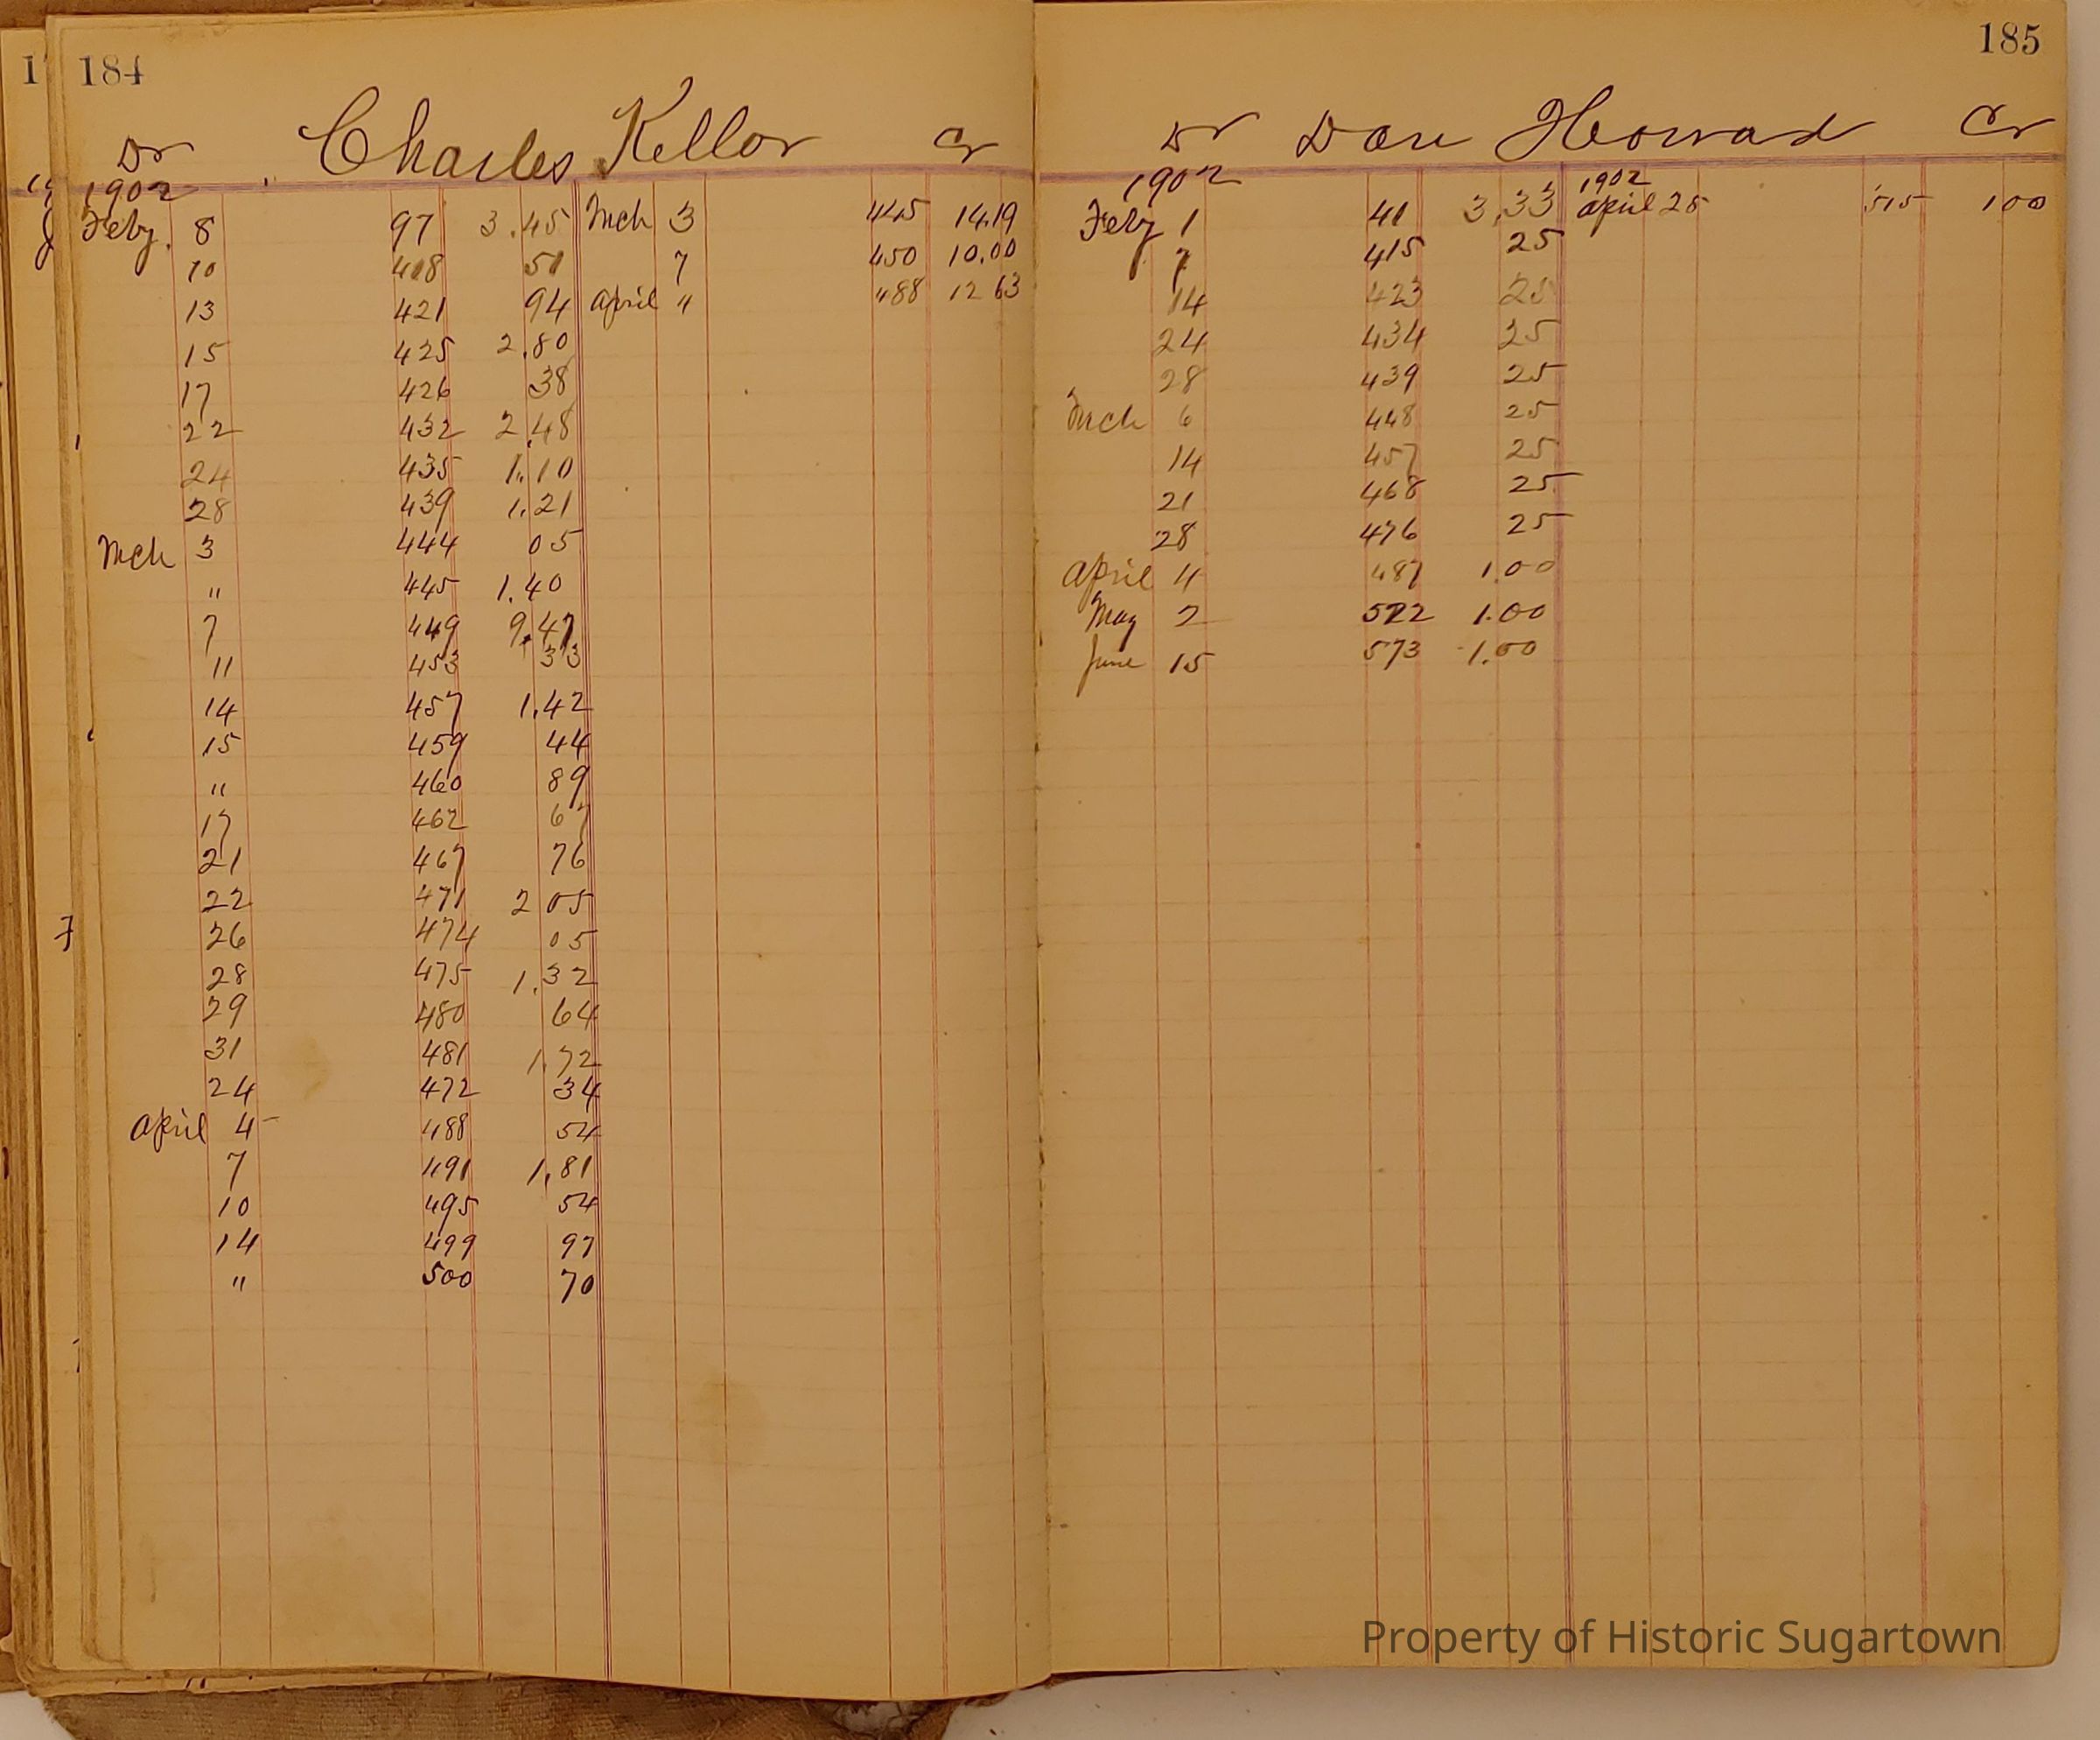 184
Dr Charles Kellor Cr
1902
Feby. 8 97 3.45 Mch 3 445 14.19
10 418 51 7 450 10.00
13 421 94 April " 488 12 63
15 425 2.80
17 426 38
22 432 2.48
24 435 1.10
28 439 1.21
Mch 3 444 05
" 445 1.40
7 449 9.47
11 453 33
14 457 1.42
15 459 44
" 460 89
17 462 67
21 467 76
22 471 2 05
26 474 05
28 475 1.32
29 480 64
31 481 1.72
24 472 34
April 4 488 54
7 491 1.81
10 495 54
14 499 97
" 500 70
185
Dr Dave Howard Cr
1902 1902
Feby 1 41 3.33 April 25 515 1 00
7 415 25
14 423 25
24 434 25
28 439 25
Mch 6 448 25
14 457 25
21 468 25
28 476 25
April 4 487 1.00
May 2 522 1.00
June 15 573 1.00
Property of Historic Sugartown